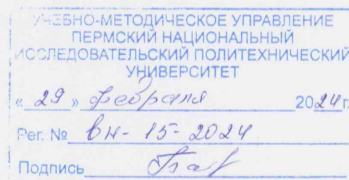 УЧЕБНО-МЕТОДИЧЕСКОЕ УПРАВЛЕНИЕ
ПЕРМСКИЙ НАЦИОНАЛЬНЫЙ
ИССЛЕДОВАТЕЛЬСКИЙ ПОЛИТЕХНИЧЕСКИЙ
УНИВЕРСИТЕТ
« 29 » февраля 2024 г.
Рег. № вн-15-2024
Подпись